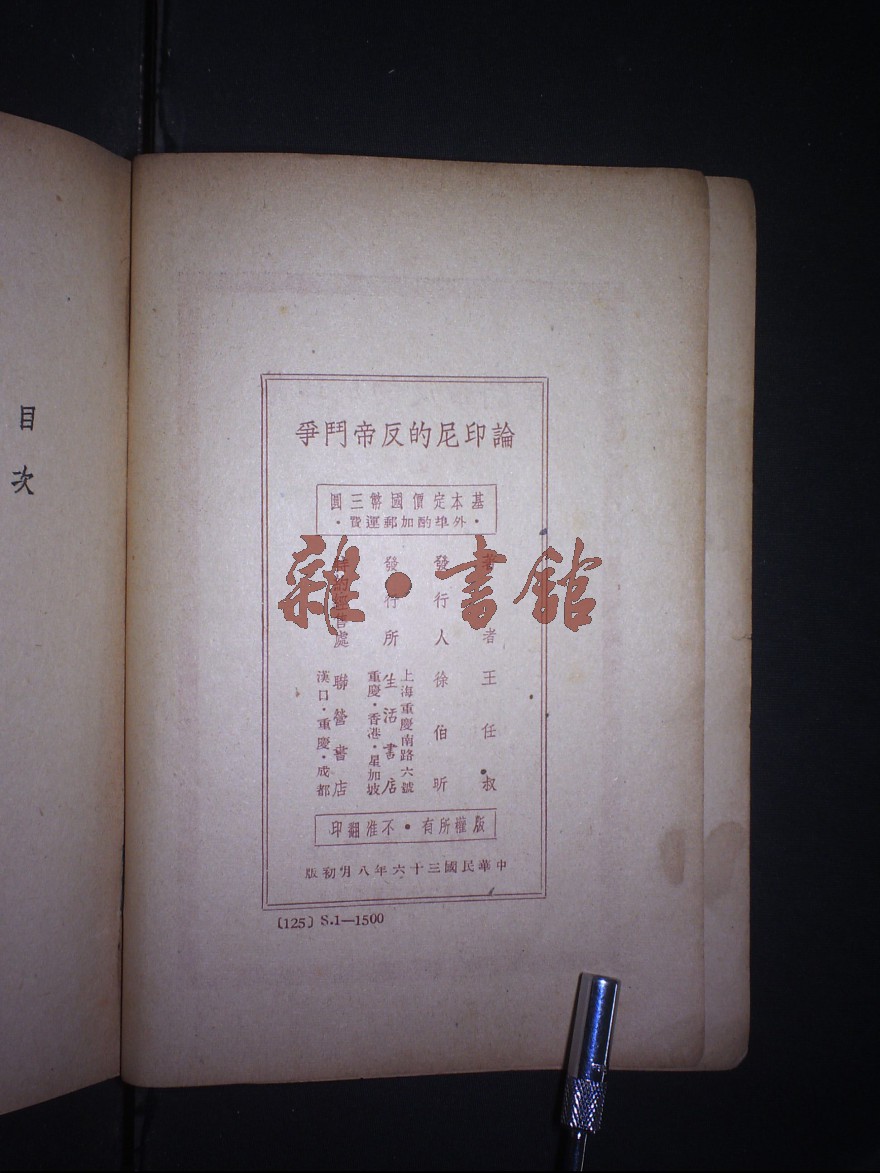 目次
論印尼的反帝鬥爭
基本定價國幣三圓
·外埠酌加郵運費·
著者 王任叔
發行人 徐伯昕
發行所 生活書店
上海重慶南路六號
重慶·香港·星加坡
聯營書店
漢口·重慶·成都
版權所有·不准翻印
中華民國三十六年八月初版
〔125〕 S.1—1500
雜·書館